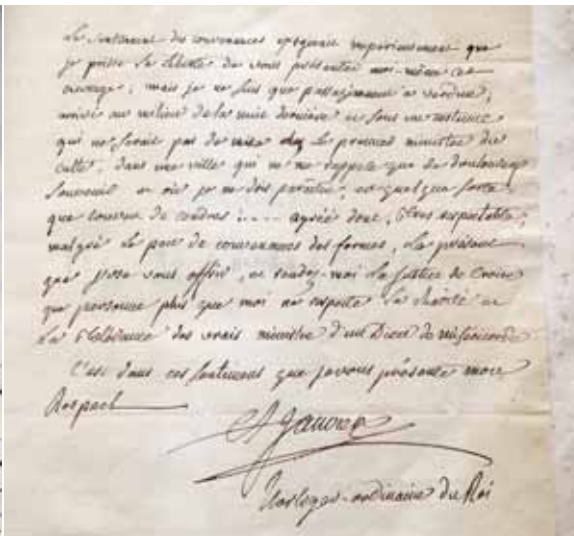 Le sentiment des convenances exigerait impérieusement que
je prisse la liberté de vous présenter moi-même cet
ouvrage; mais je ne suis que passagèrement à Verdun;
arrivé au milieu de la nuit dernière et sous un costume
qui ne serait pas de mise chez le premier ministre du
culte, dans une ville qui ne me rappelle que de douloureux
souvenir et où je ne dois paraître, en quelque sorte
que couvert de cendres :.... agréé donc, respectable,
malgré le peu de convenances des formes, le présent
que j'ose vous offrir, et rendez-moi la justice de croire
que personne plus que moi ne respecte la charité et
la des vrais ministre d'un Dieu de miséricorde
C'est dans ces sentimens que je vous présente mon
Respect
Horloger-ordinaire du Roi